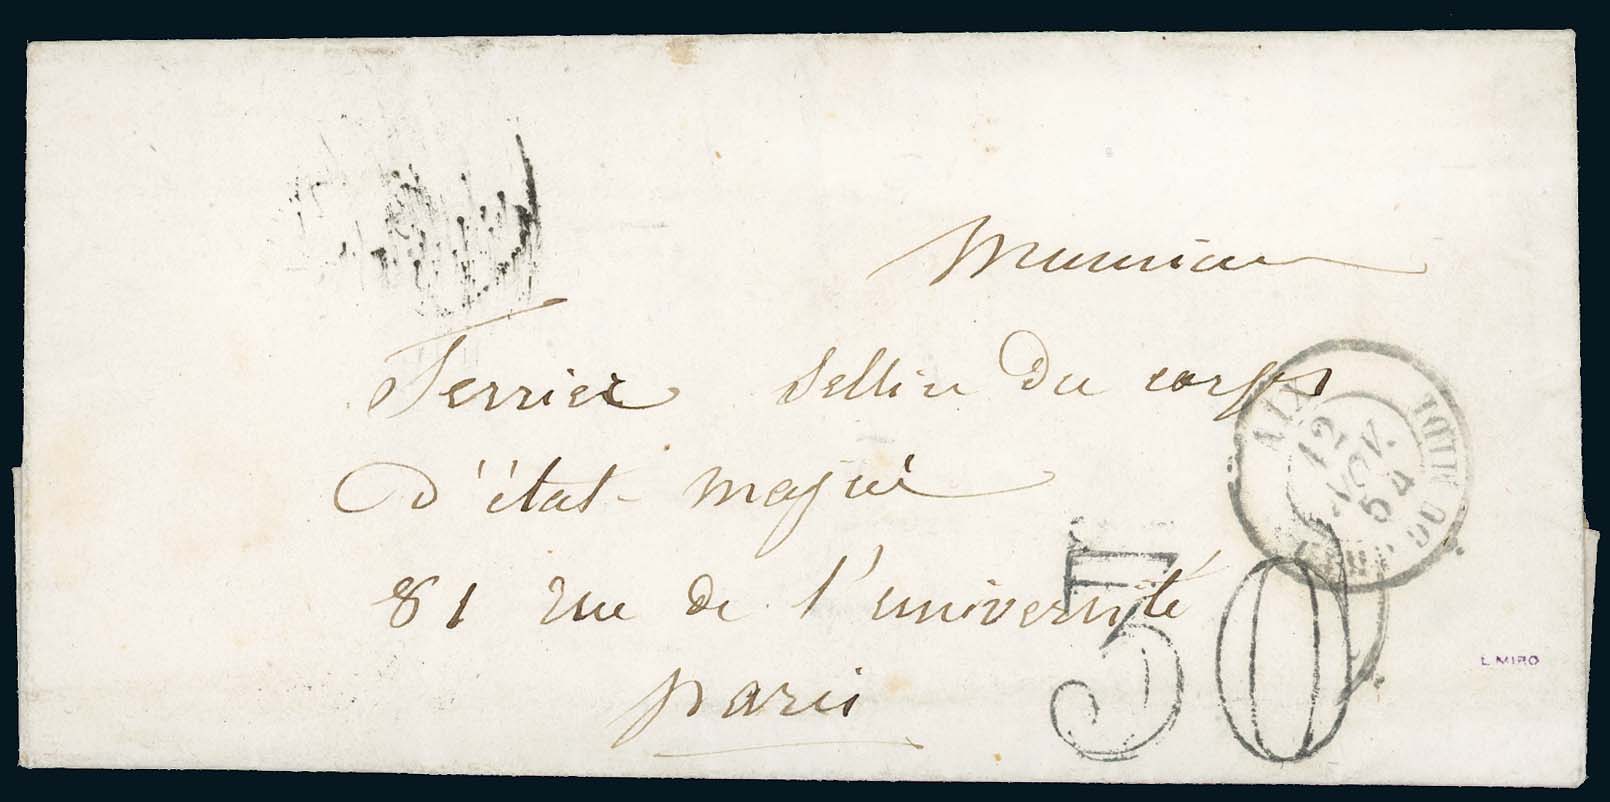 Monsieur
Terrier Sellier du corps
d'état-major
81 rue de l'université
paris
AIX
12
NOV.
54
CORPS DU MIDI
30
L. MIRO